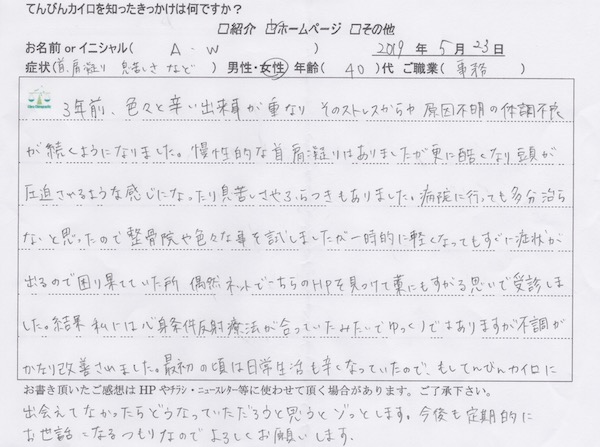 てんびんカイロを知ったきっかけは何ですか?
□紹介 ☑ホームページ □その他
お名前 or イニシャル( A . W ) 2019 年 5 月 23 日
症状(首、肩凝り 息苦しさ など) 男性・女性 年齢( 40 )代 ご職業( 事務 )
3年前、色々と辛い出来事が重なり そのストレスからか 原因不明の体調不良
が続くようになりました。慢性的な首 肩凝りはありましたが更に酷くなり頭が
圧迫されるような感じになったり息苦しさやふらつきもありました。病院に行っても多分治ら
ないと思ったので整骨院や色々な事を試しましたが一時的に軽くなってもすぐに症状が
出るので困り果てていた所 偶然ネットでこちらのHPを見つけて藁にもすがる思いで受診しま
した。結果 私には心身条件反射療法が合っていたみたいでゆっくりではありますが不調が
かなり改善されました。最初の頃は日常生活も辛くなっていたので、もしてんびんカイロに
お書き頂いたご感想は HP やチラシ・ニュースレター等に使わせて頂く場合があります。ご了承下さい。
出会えてなかったらどうなっていただろうと思うとゾッとします。今後も定期的に
お世話になるつもりなのでよろしくお願いします.